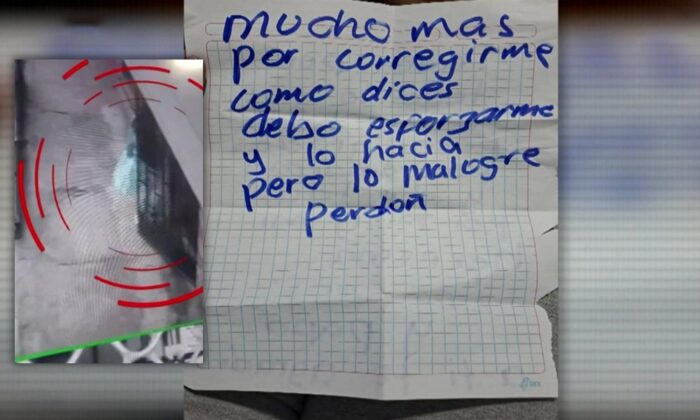 mucho mas
por corregirme
como dices
debo esforzarme
y lo hacia
pero lo malogre
perdon